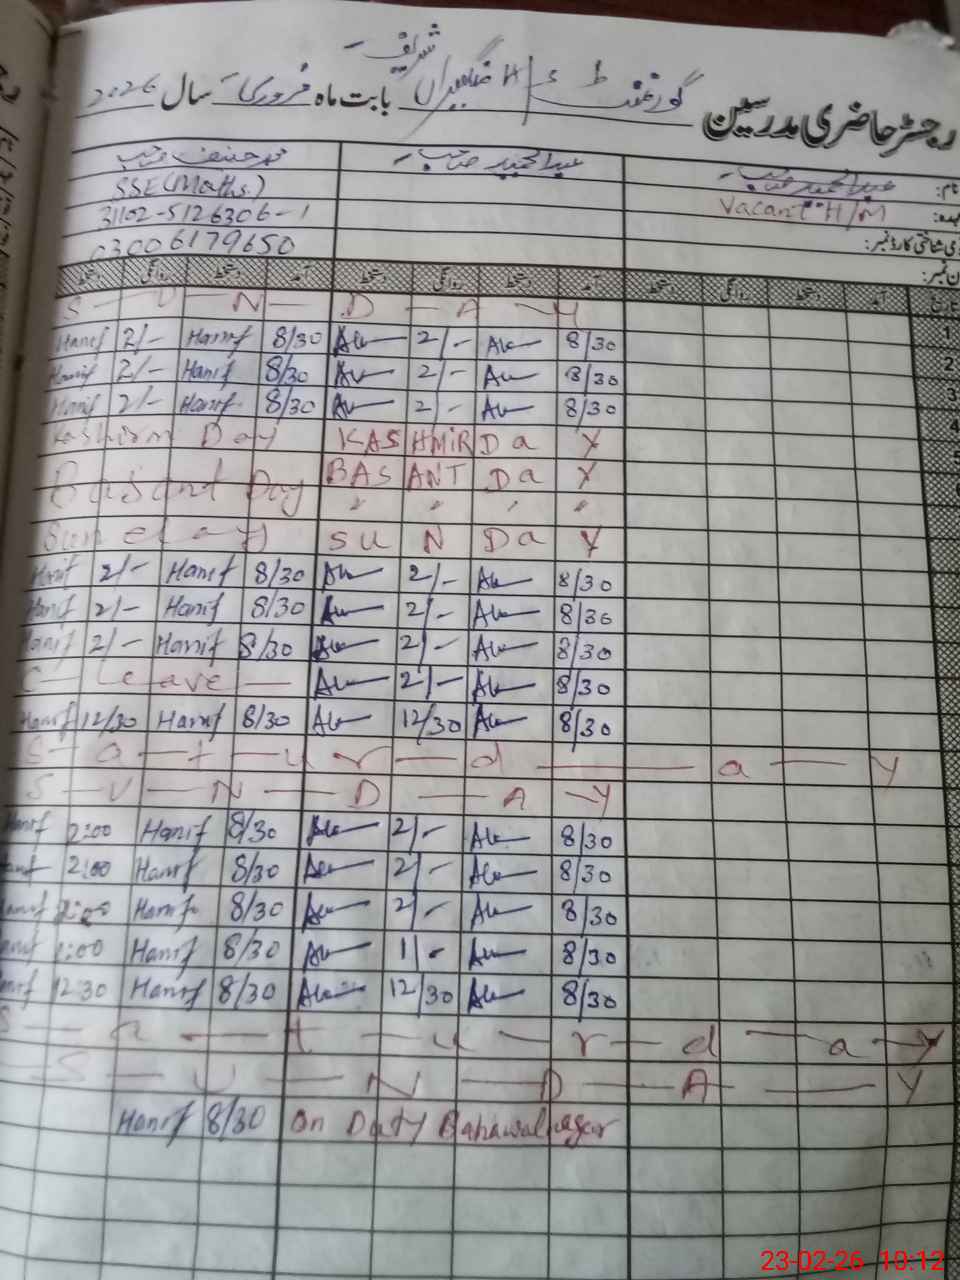 رجسٹر حاضری مدرسین گورنمنٹ بابت ماہ فروری سال 2026
شریف
نام: عبدالحمید صاحب عبدالحمید صاحب محمد حنیف صاحب
عہدہ: Vacant H/M SSE (Maths)
شناختی کارڈ نمبر: 31102-5126306-1
فون نمبر: 03006179650
تاریخ آمد دستخط روانگی دستخط آمد دستخط روانگی دستخط آمد دستخط روانگی دستخط
S U N D A Y 1
Hanif 2/- Hanif 8/30 2/- 8/30 2
Hanif 2/- Hanif 8/30 2/- 8/30 3
Hanif 2/- Hanif 8/30 2/- 8/30 4
Kashirm Day KASHMIR Day 5
Basant Day BASANT Day 6
" " " "
Sunday SUNDay
Hanif 2/- Hanif 8/30 2/- 8/30
Hanif 2/- Hanif 8/30 2/- 8/30
Hanif 2/- Hanif 8/30 2/- 8/30
C Leave 2/- 8/30
Hanif 12/30 Hanif 8/30 12/30 8/30
S a t u r d a y
S U N D A Y
Hanif 2:00 Hanif 8/30 2/- 8/30
Hanif 2:00 Hanif 8/30 2/- 8/30
Hanif 2:00 Hanif 8/30 2/- 8/30
Hanif 1:00 Hanif 8/30 1/- 8/30
Hanif 12:30 Hanif 8/30 12/30 8/30
S a t u r d a y
S U N D A Y
Hanif 8/30 on Duty Bahawalnagar
23-02-26 10:12